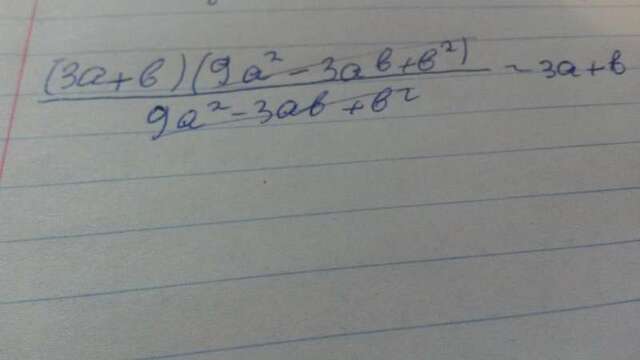 (3a+b)(9a²-3ab+b²)
9a²-3ab+b²
= 3a+b